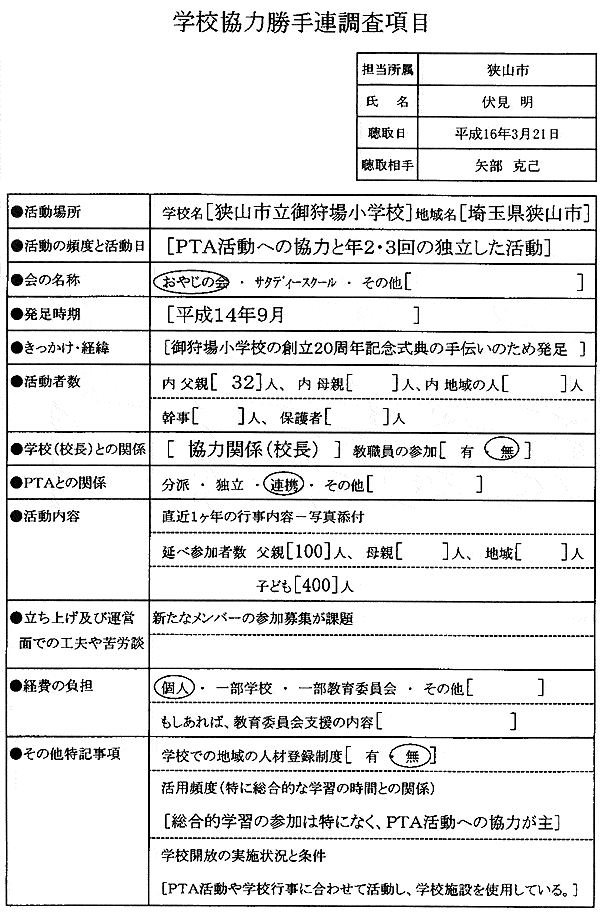 学校協力勝手連調査項目
担当所属 狭山市
氏 名 伏見 明
聴取日 平成16年3月21日
聴取相手 矢部 克己
●活動場所 学校名[狭山市立御狩場小学校]地域名[埼玉県狭山市]
●活動の頻度と活動日 [PTA活動への協力と年2・3回の独立した活動]
●会の名称 おやじの会 ・ サタディースクール ・ その他[ ]
●発足時期 [平成14年9月 ]
●きっかけ・経緯 [御狩場小学校の創立20周年記念式典の手伝いのため発足 ]
●活動者数 内 父親[ 32]人、 内 母親[ ]人、内 地域の人[ ]人
幹事[ ]人、 保護者[ ]人
●学校(校長)との関係 [ 協力関係(校長) ] 教職員の参加[ 有 ・ 無 ]
●PTAとの関係 分派 ・ 独立 ・ 連携 ・ その他[ ]
●活動内容 直近1ヶ年の行事内容－写真添付
延べ参加者数 父親[100]人、 母親[ ]人、 地域[ ]人
子ども[400]人
●立ち上げ及び運営 新たなメンバーの参加募集が課題
面での工夫や苦労談
●経費の負担 個人 ・ 一部学校 ・ 一部教育委員会 ・ その他[ ]
もしあれば、教育委員会支援の内容[ ]
●その他特記事項 学校での地域の人材登録制度[ 有 ・ 無 ]
活用頻度(特に総合的な学習の時間との関係)
[総合的学習の参加は特になく、PTA活動への協力が主]
学校開放の実施状況と条件
[PTA活動や学校行事に合わせて活動し、学校施設を使用している。]